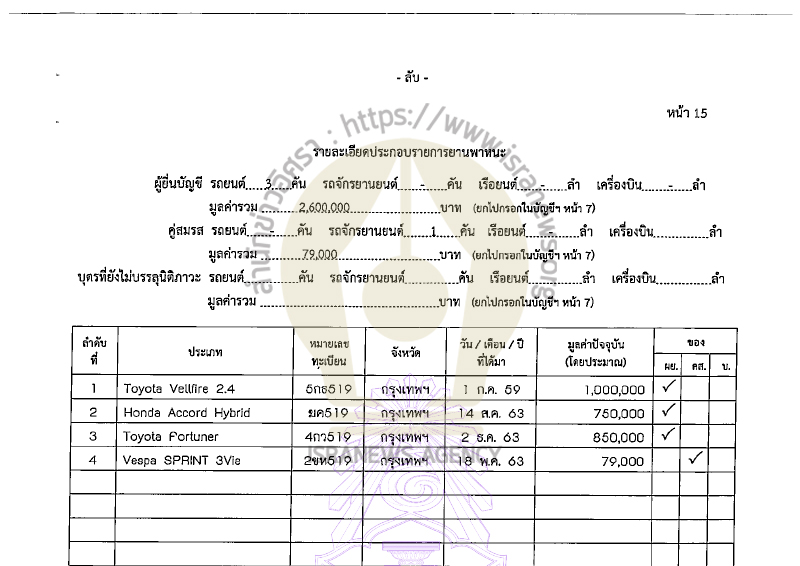 - ลับ -
หน้า 15
รายละเอียดประกอบรายการยานพาหนะ
ผู้ยื่นบัญชี รถยนต์.....3.....คัน รถจักรยานยนต์......-......คัน เรือยนต์......-......ลำ เครื่องบิน.......-......ลำ
มูลค่ารวม ..........2,600,000..........บาท (ยกไปกรอกในบัญชีฯ หน้า 7)
คู่สมรส รถยนต์......-......คัน รถจักรยานยนต์......1......คัน เรือยนต์......-......ลำ เครื่องบิน..............ลำ
มูลค่ารวม ..........79,000..........บาท (ยกไปกรอกในบัญชีฯ หน้า 7)
บุตรที่ยังไม่บรรลุนิติภาวะ รถยนต์..............คัน รถจักรยานยนต์..............คัน เรือยนต์..............ลำ เครื่องบิน..............ลำ
มูลค่ารวม ..............................บาท (ยกไปกรอกในบัญชีฯ หน้า 7)
ลำดับที่ ประเภท หมายเลขทะเบียน จังหวัด วัน / เดือน / ปี ที่ได้มา มูลค่าปัจจุบัน (โดยประมาณ) ของ
ผย. คส. บ.
1 Toyota Vellfire 2.4 5กธ519 กรุงเทพฯ 1 ก.ค. 59 1,000,000 ✓
2 Honda Accord Hybrid ฆค519 กรุงเทพฯ 14 ส.ค. 63 750,000 ✓
3 Toyota Fortuner 4กว519 กรุงเทพฯ 2 ธ.ค. 63 850,000 ✓
4 Vespa SPRINT 3Vie 2ขห519 กรุงเทพฯ 18 พ.ค. 63 79,000 ✓
สำนักข่าวอิศรา : https://www.isranews.org
ISRANEWS AGENCY